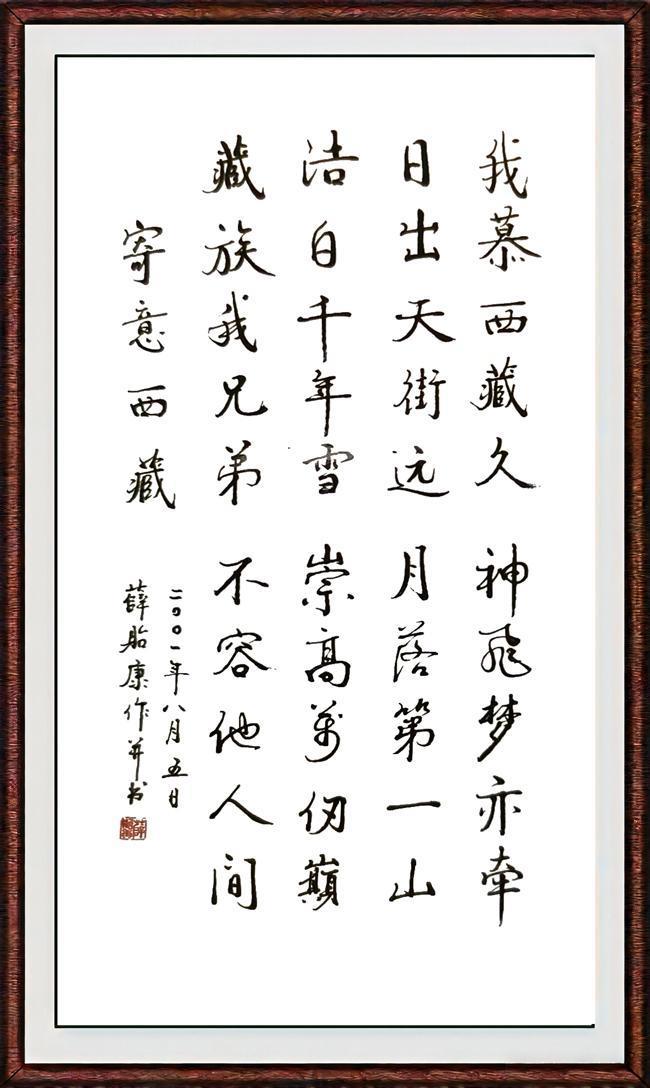 我慕西藏久 神飛梦亦牵
日出天街远 月落第一山
洁白千年雪 崇高萬仞巅
藏族我兄弟 不容他人间
寄意西藏
二〇〇一年八月五日
薛胎康作并书